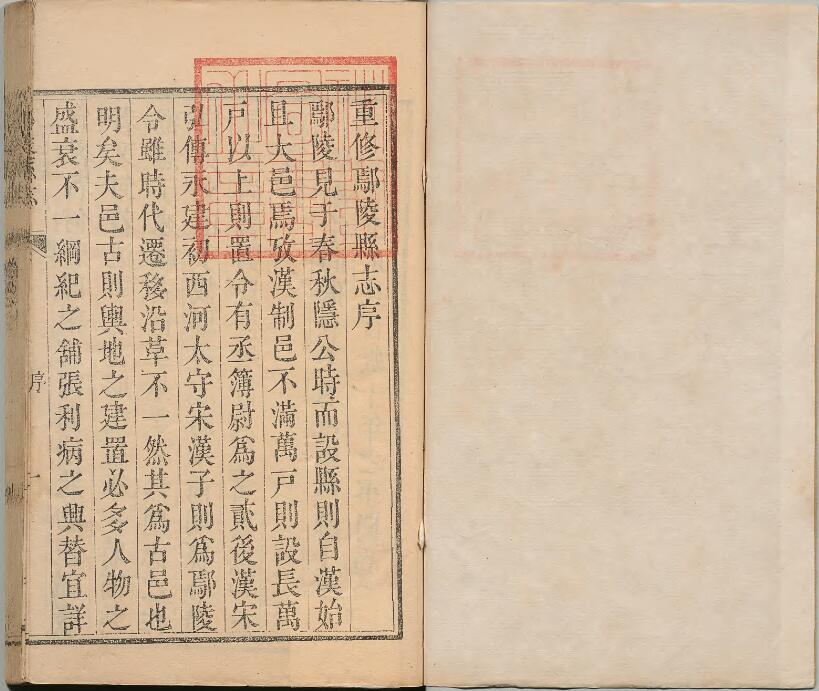 重修鄢陵縣志序
鄢陵見于春秋隱公時而設縣則自漢始
且大邑焉攷漢制邑不滿萬戸則設長萬
戸以上則置令有丞簿尉爲之貳後漢宋
弘傳永建初西河太守宋漢子則爲鄢陵
令雖時代遷移沿革不一然其爲古邑也
明矣夫邑古則輿地之建置必多人物之
盛衰不一綱紀之舗張利病之興替宜詳
序
一